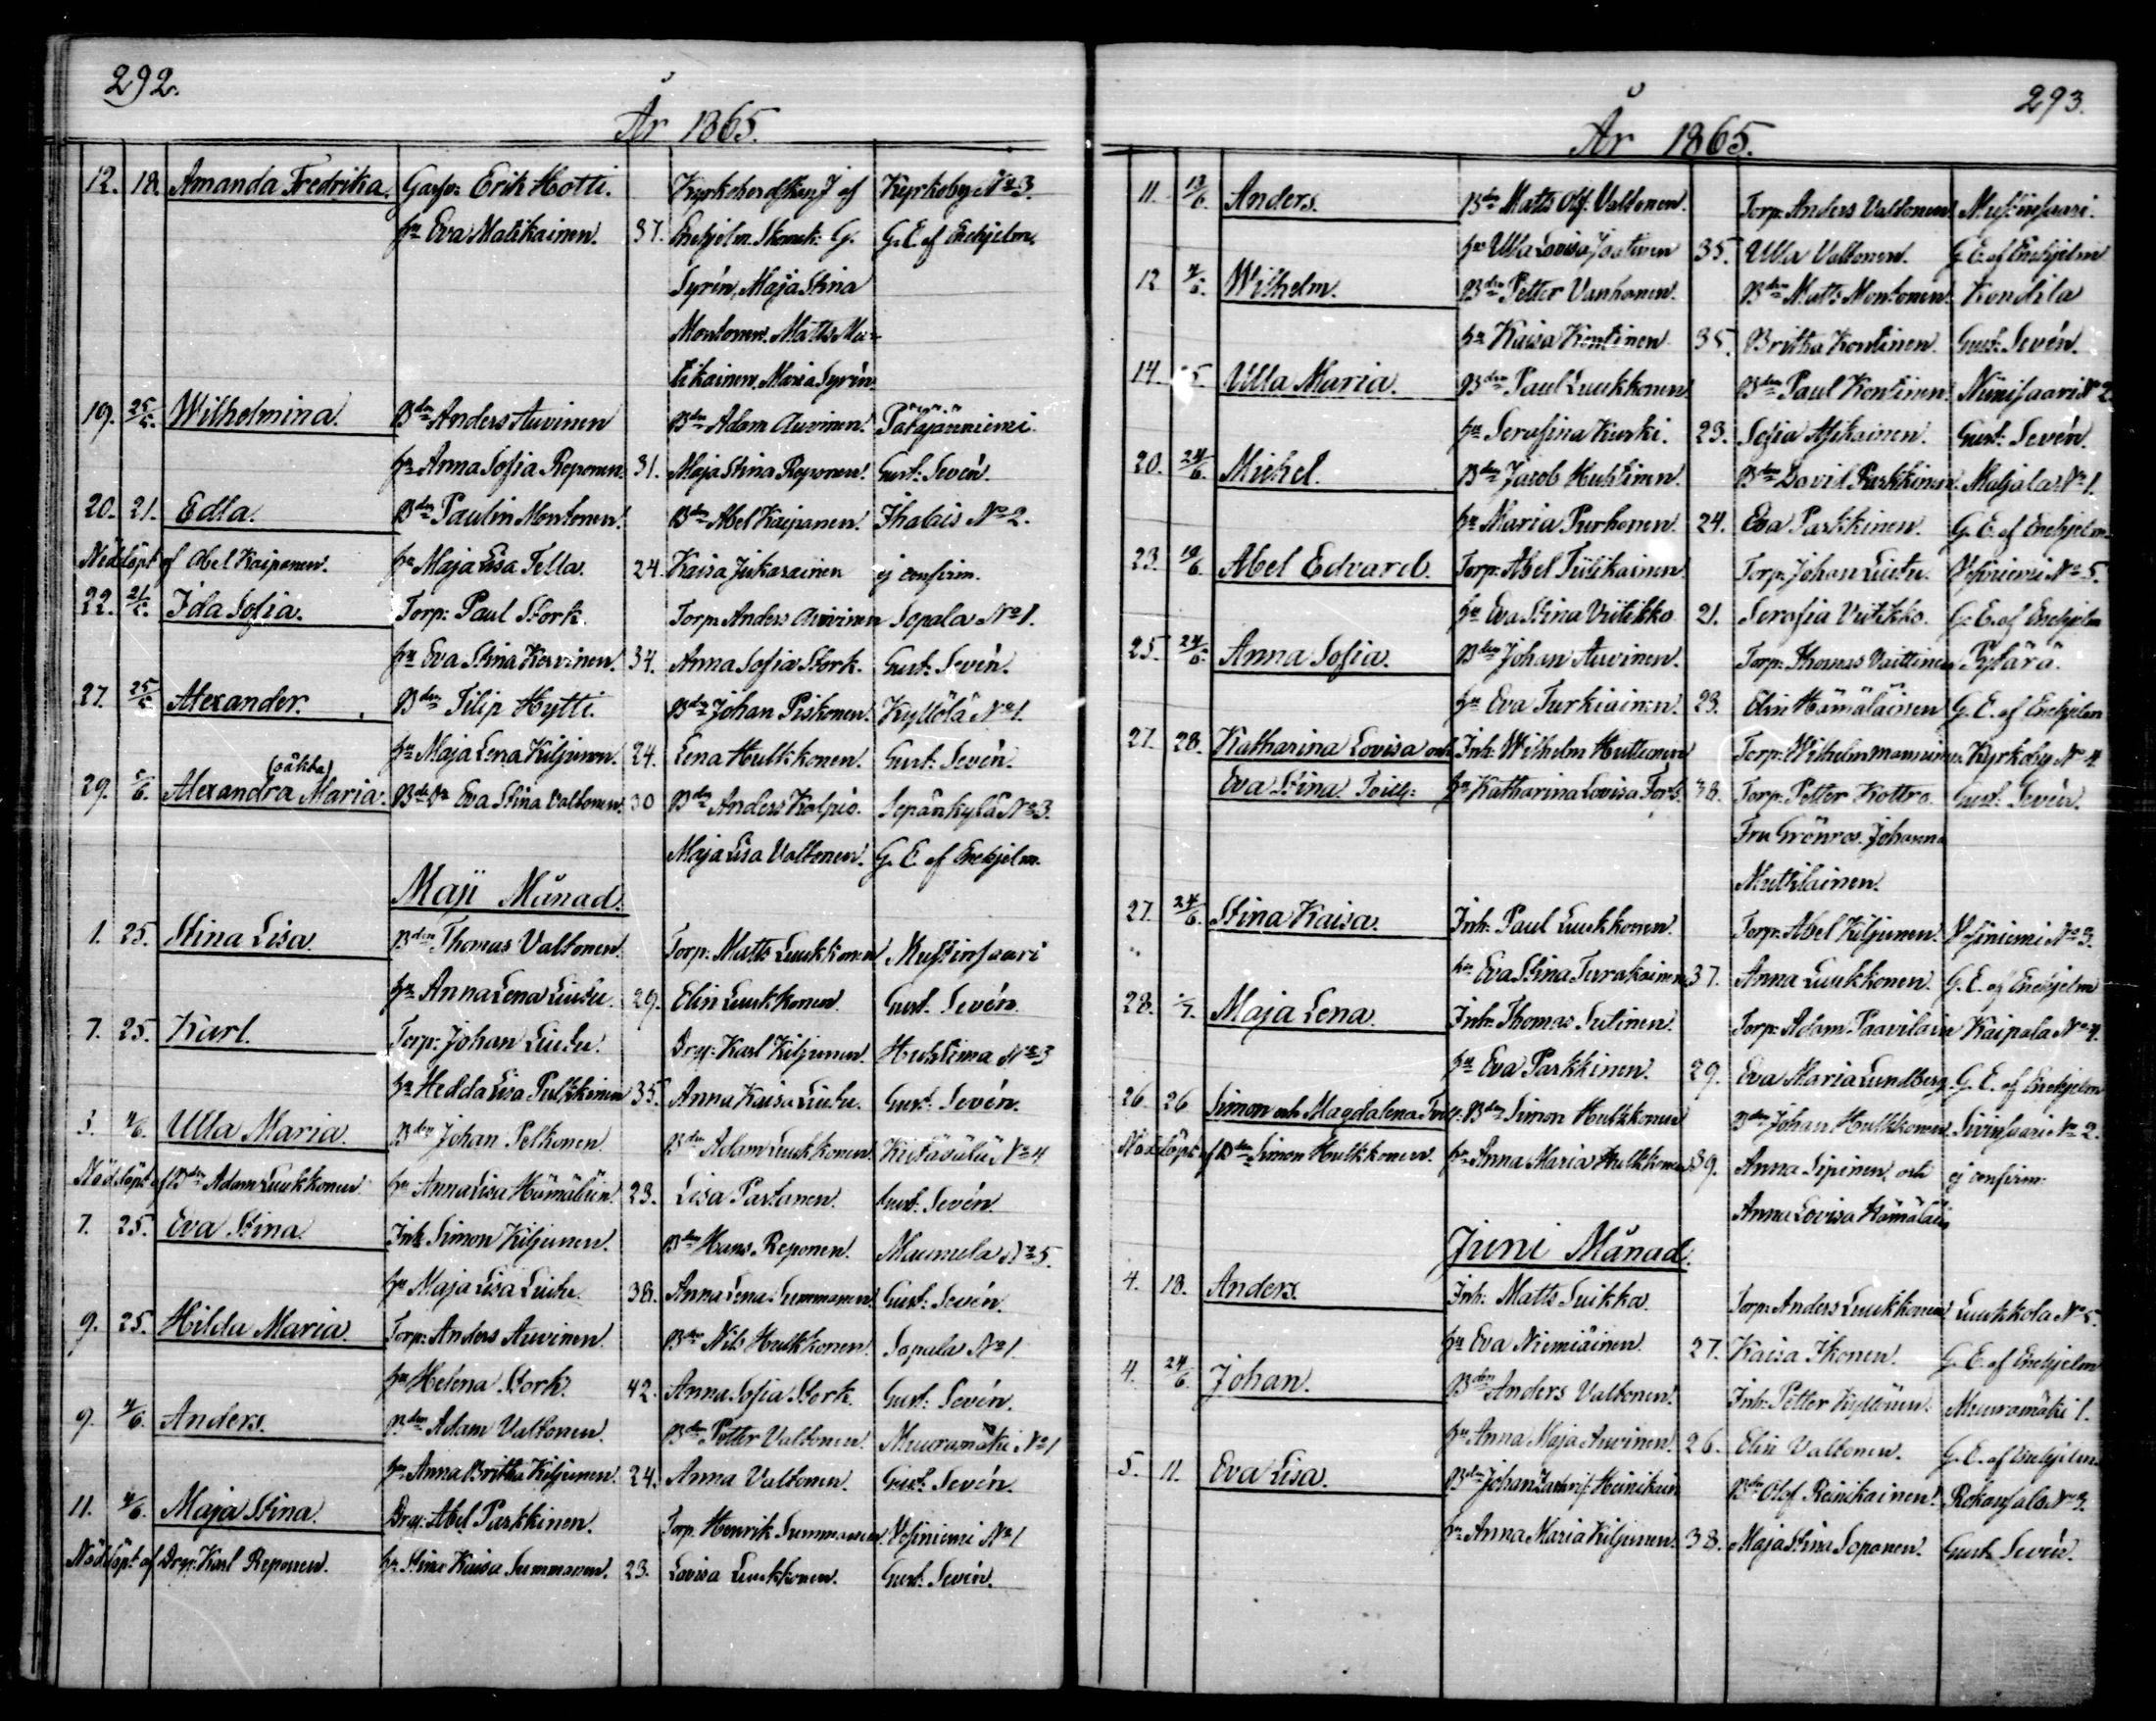 292.
År 1865.
12. 18. Amanda Fredrika. Erik Hotti. Kyrkoherdskan J af Kyrkoby No 3.
hu Eva Matikainen. 37. Enehjelm. G. G. E. af Enehjelm.
Syrén, Maja Stina
Montonen. Matts Ma-
tikainen. Maria Syrén.
19. 25/5. Wilhelmina. Bden Anders Auvinen Bden Adam Auvinen. Pätäjänniemi.
hu Anna Sofia Reponen. 31. Maja Stina Reponen. Gust: Sevén.
20. 21. Edla. Bden Paulin Montonen. Bden Abel Kaipanen. Ihalais No 2.
Nöddöpt af Abel Kaipanen. hu Maja Lisa Tella. 24. Kaisa Jukarainen ej confirm.
22. 21/5. Ida Sofia. Torp: Paul Stork. Torp: Anders Auvinen Sopala No 1.
hu Eva Stina Kervinen. 34. Anna Sofia Stork. Gust: Sevén.
27. 25/5 Alexander. Bden Filip Hytti. Bden Johan Piskonen. Kyllölä No 1.
hu Maja Lena Kiljunen. 24. Lena Hulkkonen. Gust: Sevén.
(oäkta)
29. 5/6. Alexandra Maria. Eva Stina Valtonen. 30 Bden Anders Kolpio. Sepänkylä No 3.
Maja Lisa Valtonen. G. E. af Enehjelm.
Maji Månad.
1. 25. Stina Lisa. Bden Thomas Valtonen. Torp: Matts Luukkonen Mustinsaari
hu Anna Lena Liutu. 29. Elin Luukkonen. Gust. Sevén.
7. 25. Karl. Torp: Johan Liutu. Drg: Karl Kiljunen. Huhtima No 3
hu Hedda Lisa Pulkkinen 35. Anna Kaisa Liutu. Gust: Sevén.
3. 4/6. Ulla Maria. Bden Johan Pelkonen Bden Adam Luukkonen. No 4
Nöddöpt af Bden Adam Luukkonen hu Anna Lisa Hämäläin. 23. Lisa Partanen. Gust: Sevén.
7. 25. Eva Stina. Inh: Simon Kiljunen. Bden Hans Reponen. Maumula No 5.
hu Maja Lisa Liutu. 38. Anna Lena Summanen. Gust: Sevén.
9. 25. Hilda Maria. Torp: Anders Auvinen. Bden Nils Hulkkonen. Sopala No 1.
hu Helena Stork. 42. Anna Sofia Stork. Gust: Sevén.
9. 4/6. Anders. Bden Adam Valtonen. Bden Petter Valtonen. Muuramäki No 1
hu Anna Britha Kiljunen. 24. Anna Valtonen. Gust: Sevén.
11. 4/6. Maja Stina. Drg: Abel Parkkinen. Torp: Henrik Summanen. Vesiniemi No 1
Nöddöpt af Drg: Karl Reponen. hu Stina Kaisa Summanen. 23. Lovisa Luukkonen. Gust: Sevén.
293.
År 1865.
11. 18/6. Anders. Bden Matts Olof: Valtonen. Torp: Anders Valtonen. Mustinsaari.
hu Ulla Lovisa Jaatinen 35. Ulla Valtonen. G. E. af Enehjelm
12 4/6. Wilhelm. Bden Petter Vanhanen. Bden Matts Montonen. Kondila
hu Kaisa Kontinen 35. Britha Kontinen. Gust: Sevén.
14. 25. Ulla Maria. Bden Paul Luukkonen Bden Paul Kontinen. Niinisaari No 2
hu Serafina Kurki. 23. Sofia Asikainen. Gust: Sevén.
20. 24/6. Michel. Bden Jacob Huhtinen. Bden David Parkkinen. Maljala No 1.
hu Maria Purhonen. 24. Eva Parkkinen. G. E. af Enehjelm.
23. 18/6. Abel Edvard. Torp: Abel Tiilikainen. Torp: Johan Liutu. Vesiniemi No 5.
hu Eva Stina Viitikko 21. Serafia Viitikko. G. E. af Enehjelm
25. 24/6. Anna Sofia. Bden Johan Auvinen. Torp: Thomas Vaittinen
hu Eva Turkiainen. 23. Elin Hämäläinen G. E. af Enehjelm
27. 28. Katharina Lovisa och Inh: Wilhelm Huttunen Torp: Wilhelm Manninen Kyrkoby No 4.
Eva Stina Tvill: hu Katharina Lovisa 38. Torp: Petter Kottro. Gust: Sevén.
Fru Grönros. Johanna
Mutkilainen.
27. 24/6. Stina Kaisa. Inh: Paul Luukkonen. Torp: Abel Kiljunen. Vesiniemi No 3.
hu Eva Stina Turakainen 37. Anna Luukkonen. G. E. af Enehjelm
28. Maja Lena. Inh: Thomas Sutinen. Torp: Adam Paavilain Kaipala No 4.
hu Eva Parkkinen. 29. Eva Maria Lundberg G. E. af Enehjelm
26. 26 Simon och Magdalena Tvill: Bden Simon Hulkkonen Bden Johan Hulkkonen. No 2.
Nöddöpt af Bden Simon Hulkkonen. hu Anna Maria Hulkkonen 39. Anna Sipinen, och ej confirm:
Anna Lovisa Hämäläin
Juni Månad.
4. 18. Anders. Inh: Matts Suikka. Torp: Anders Luukkonen Luukkola No 5.
hu Eva Niemiäinen. 27. Kaisa Ikonen. G. E. af Enehjelm
4. 24/6. Johan. Bden Anders Valtonen. Inh: Petter Kyllönen. Muuramäki 1.
hu Anna Maja Auvinen. 26. Elin Valtonen. G. E. af Enehjelm
5. 11. Eva Lisa. Bden Johan Heinikain Bden Olof Reinikainen. Rokansalo No 3.
hu Anna Maria Kiljunen. 38. Maja Stina Soponen. Gust: Sevén.